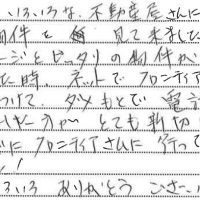 いろいろな、不動産屋さんに
物件を 見て来まし
ージとピッタリの物件が
た時、ネットで フロンティア
つけて、ダメもとで 電話
とても親切
にフロンティアさんに 行って
ろいろ ありがとう ござ